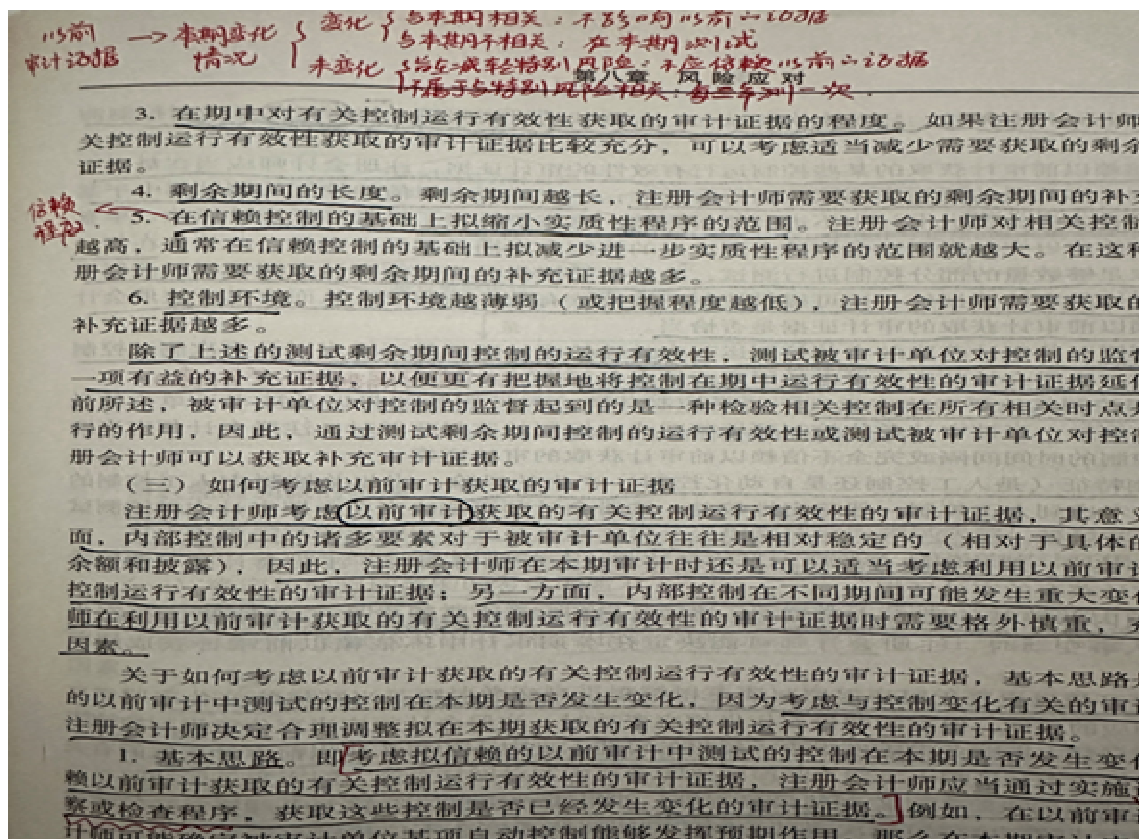 以前 → 本期变化 { 变化 { 与本期相关：不影响以前的证据
审计证据 情况 与本期不相关：在本期测试
未变化 { 旨在减轻特别风险：不应信赖以前的证据
不属于与特别风险相关：每三年测一次.
第八章 风险应对
3. 在期中对有关控制运行有效性获取的审计证据的程度。如果注册会计师
关控制运行有效性获取的审计证据比较充分，可以考虑适当减少需要获取的剩余
证据。
4. 剩余期间的长度。剩余期间越长，注册会计师需要获取的剩余期间的补
信赖
程度
5. 在信赖控制的基础上拟缩小实质性程序的范围。注册会计师对相关控制
越高，通常在信赖控制的基础上拟减少进一步实质性程序的范围就越大。在这种
册会计师需要获取的剩余期间的补充证据越多。
6. 控制环境。控制环境越薄弱（或把握程度越低），注册会计师需要获取的
补充证据越多。
除了上述的测试剩余期间控制的运行有效性，测试被审计单位对控制的监
一项有益的补充证据，以便更有把握地将控制在期中运行有效性的审计证据延
前所述，被审计单位对控制的监督起到的是一种检验相关控制在所有相关时点
行的作用，因此，通过测试剩余期间控制的运行有效性或测试被审计单位对控
册会计师可以获取补充审计证据。
（三）如何考虑以前审计获取的审计证据
注册会计师考虑以前审计获取的有关控制运行有效性的审计证据，其意
面，内部控制中的诸多要素对于被审计单位往往是相对稳定的（相对于具体的
余额和披露），因此，注册会计师在本期审计时还是可以适当考虑利用以前审
控制运行有效性的审计证据；另一方面，内部控制在不同期间可能发生重大变
师在利用以前审计获取的有关控制运行有效性的审计证据时需要格外慎重，充
因素。
关于如何考虑以前审计获取的有关控制运行有效性的审计证据，基本思路
的以前审计中测试的控制在本期是否发生变化，因为考虑与控制变化有关的审
注册会计师决定合理调整拟在本期获取的有关控制运行有效性的审计证据。
1. 基本思路。即[考虑拟信赖的以前审计中测试的控制在本期是否发生变
赖以前审计获取的有关控制运行有效性的审计证据，注册会计师应当通过实施
察或检查程序，获取这些控制是否已经发生变化的审计证据。]例如，在以前审
计师可能确定被审计单位某项自动控制能够发挥预期作用，那么在本期